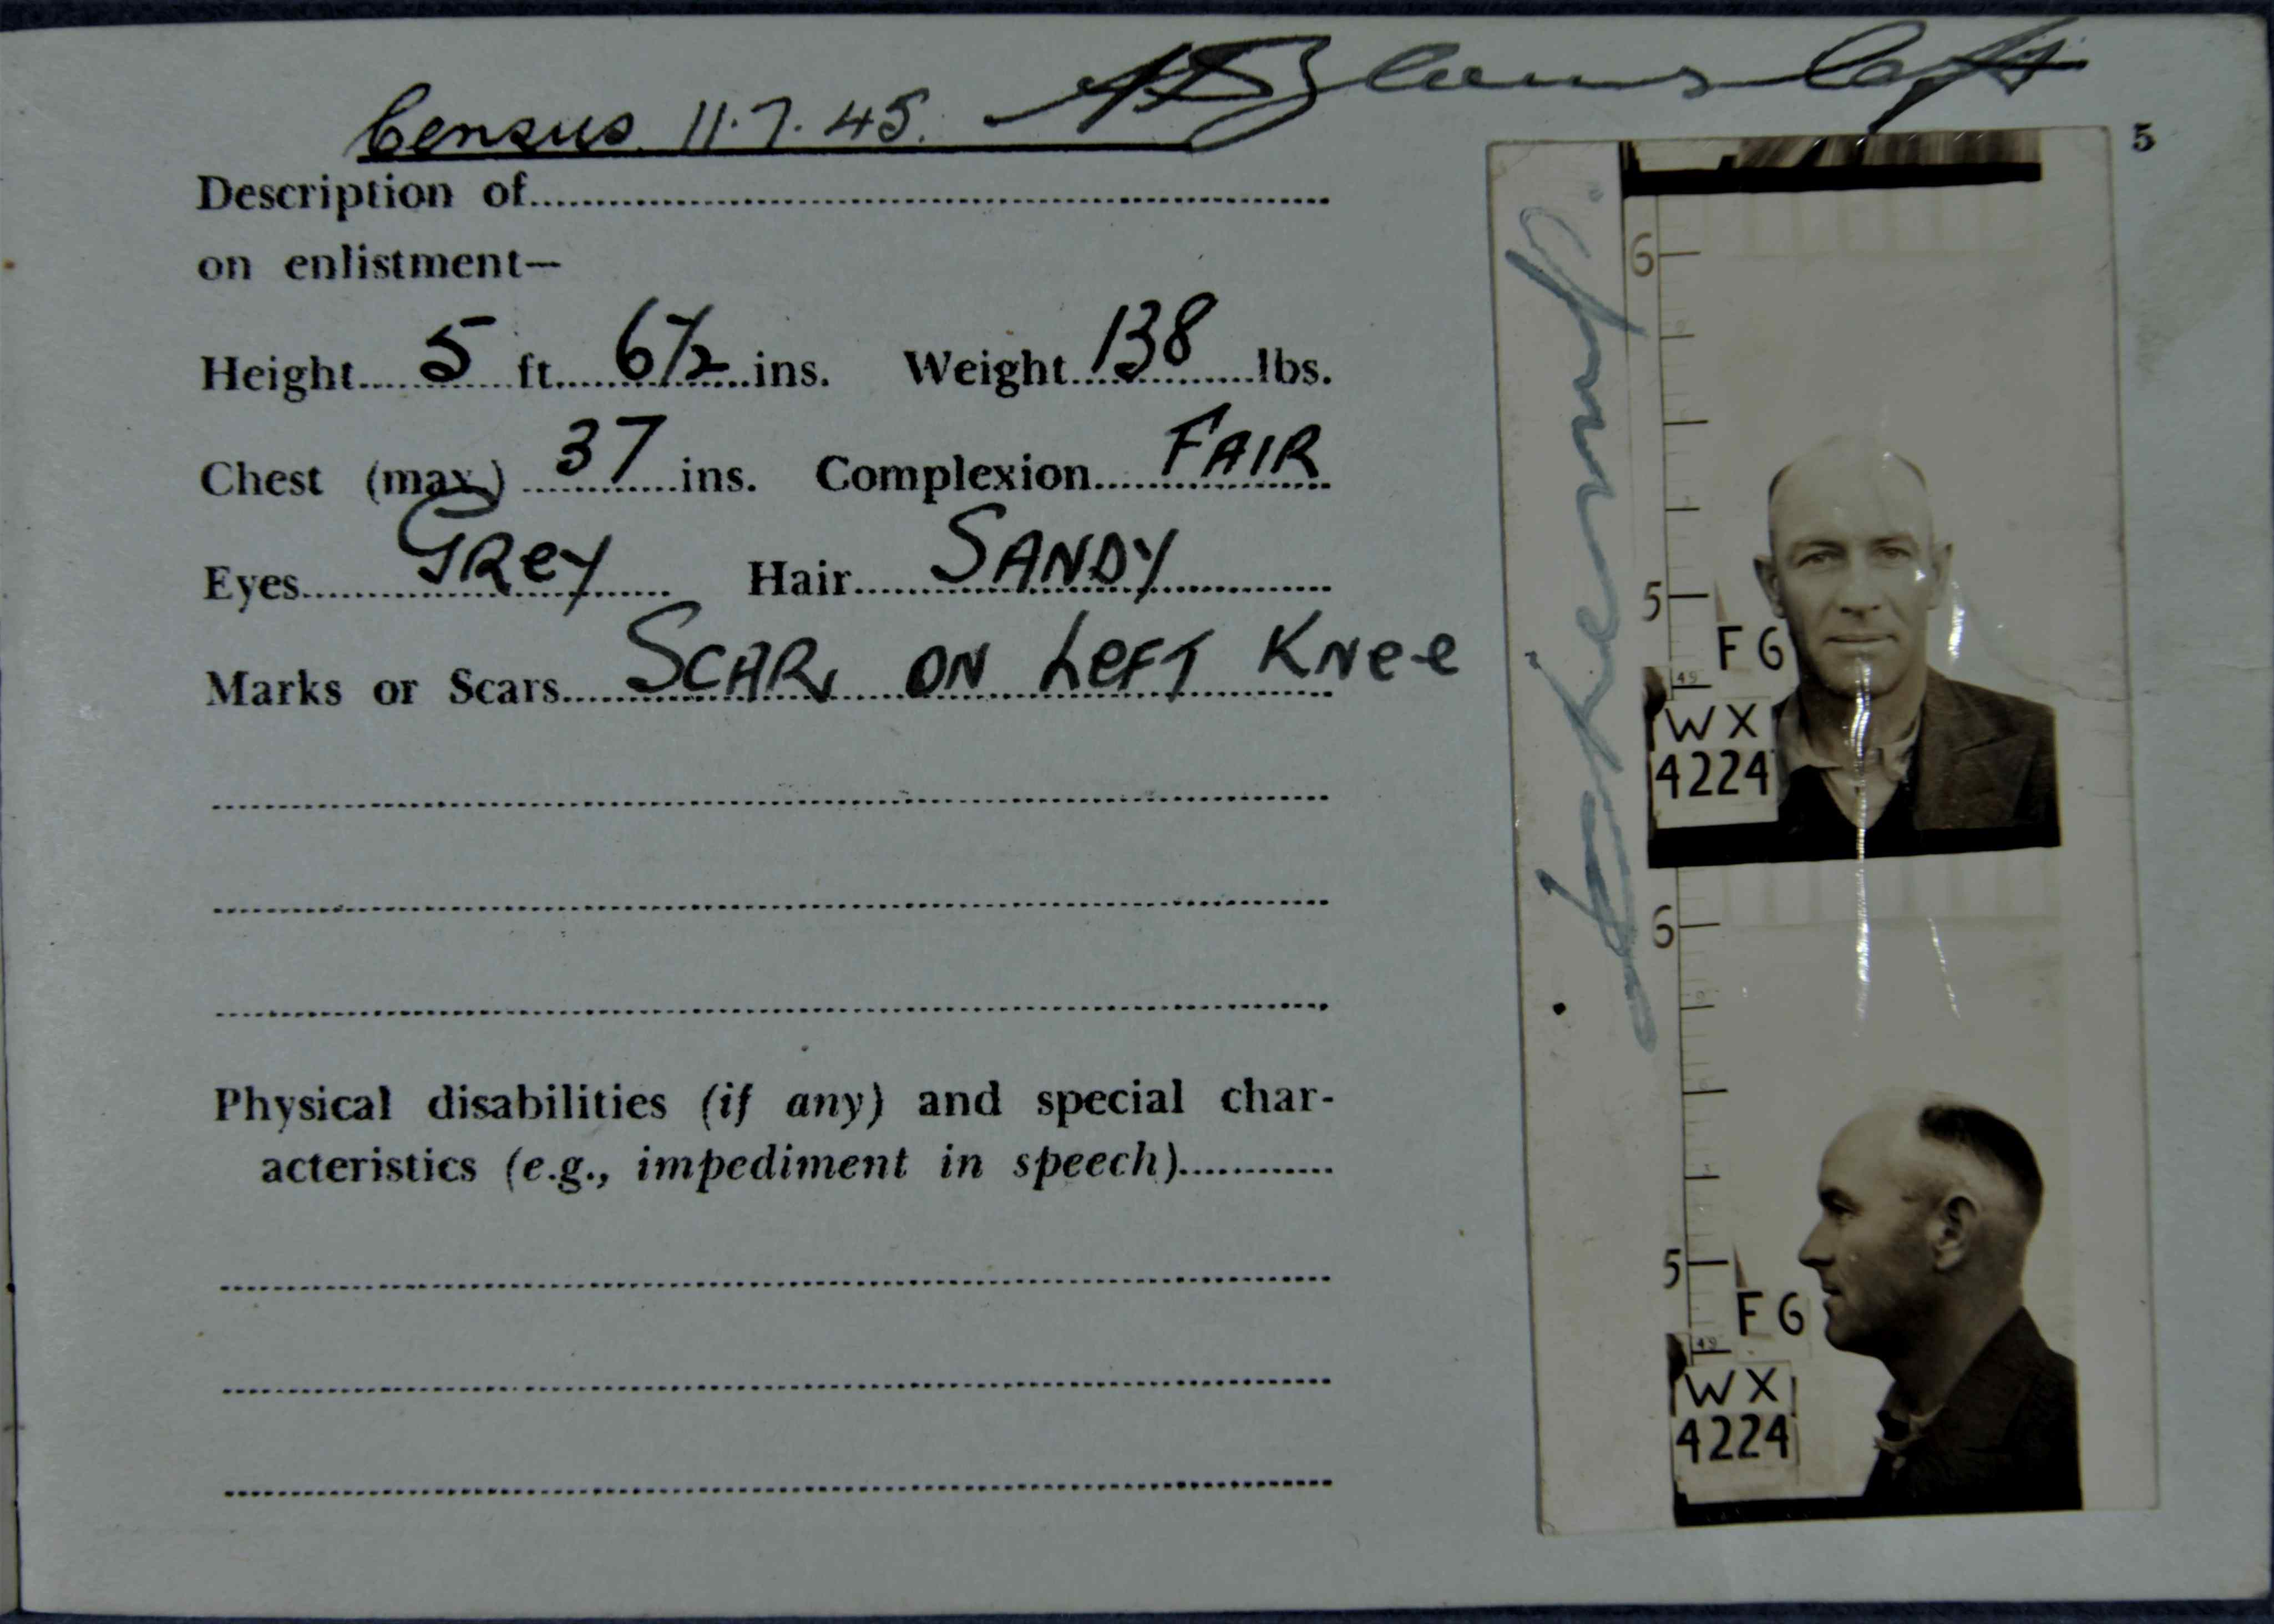 Census. 11.7.45.
5
Description of
on enlistment—
Height 5 ft. 6½ ins. Weight 138 lbs.
Chest (max.) 37 ins. Complexion FAIR
Eyes GRey Hair SANDY
Marks or Scars SCAR, ON LeFT KNee
Physical disabilities (if any) and special char-
acteristics (e.g., impediment in speech)
6
5
F G
49
WX
4224
6
5
F G
49
WX
4224